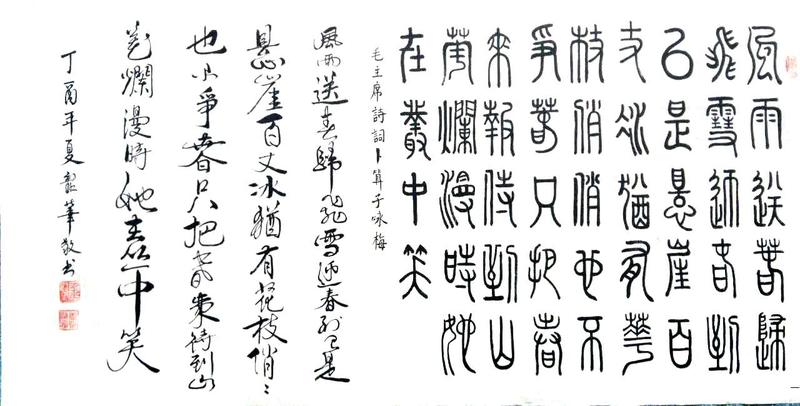 風雨送春歸
飛雪迎春到
已是懸崖百
丈冰猶有華
枝俏俏也不
爭春只把春
來報待到山
華爛漫時她
在叢中笑
毛主席詩詞卜算子咏梅
風雨送春歸飛雪迎春到已是
懸崖百丈冰猶有花枝俏〻
也不爭春只把春來待到山
花爛漫時她在叢中笑
丁酉年夏龍華敬书